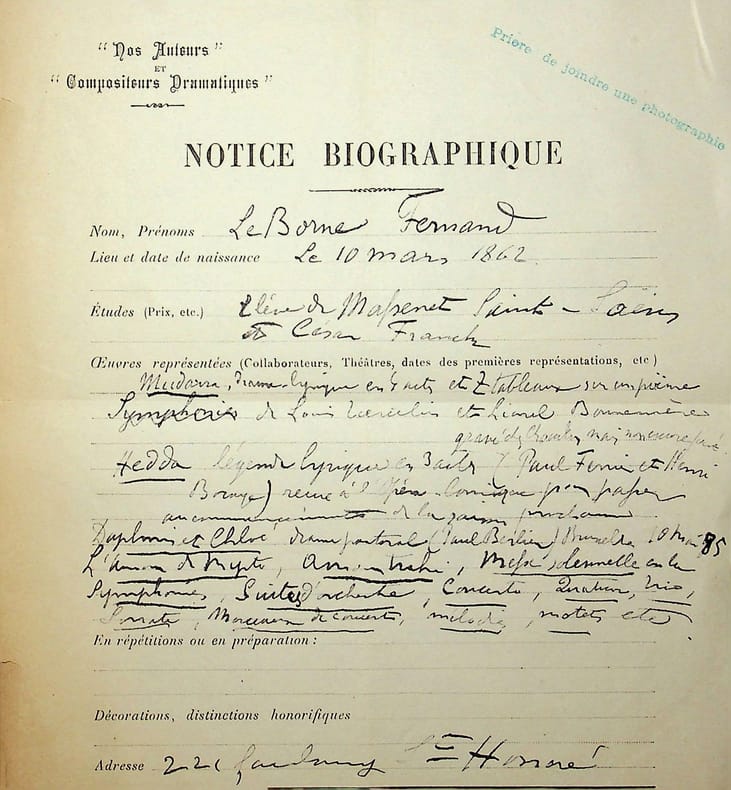 "Nos Auteurs"
ET
"Compositeurs Dramatiques"
Prière de joindre une photographie
NOTICE BIOGRAPHIQUE
Nom, Prénoms Le Borne Fernand
Lieu et date de naissance Le 10 mars 1862
Études (Prix, etc.) Elève de Massenet Saint-Saëns
et César Franck
Œuvres représentées (Collaborateurs, Théâtres, dates des premières représentations, etc)
Mudarra, drame lyrique en 4 acts et 7 tableaux sur un poème
de Louis et Lionel Bonnemère
gravé chez Choudens mais non encore
Hedda légende lyrique en 3 actes (Paul Ferrier et Henri
Bocage) reçue à l'Opéra-Comique pour passer
au commencement de la saison prochaine
Daphnis et Chloé drame pastoral (Paul Berlier) Bruxelles 10 Mai 85
L'amour de Myrto, Messe solennelle en la
Symphonies, Suites d'orchestre, Concerto, Quatuor, Trio,
Sonate, Morceaux de concerts, mélodies, motets etc
En répétitions ou en préparation :
Décorations, distinctions honorifiques
Adresse 221 faubourg St Honoré